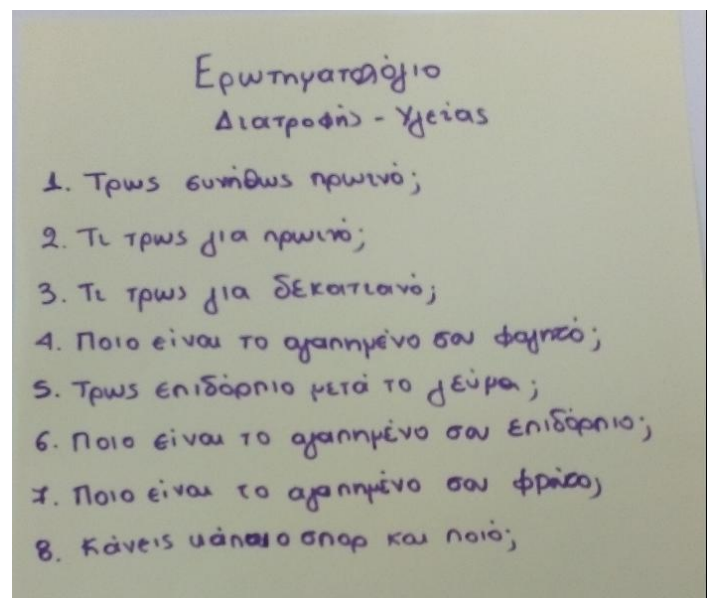 Ερωτηματολόγιο
Διατροφής - Υγείας
1. Τρως συνήθως πρωινό;
2. Τι τρως για πρωινό;
3. Τι τρως για δεκατιανό;
4. Ποιο είναι το αγαπημένο σου φαγητό;
5. Τρως επιδόρπιο μετά το γεύμα;
6. Ποιο είναι το αγαπημένο σου επιδόρπιο;
7. Ποιο είναι το αγαπημένο σου φρούτο;
8. Κάνεις κάποιο σπορ και ποιό;